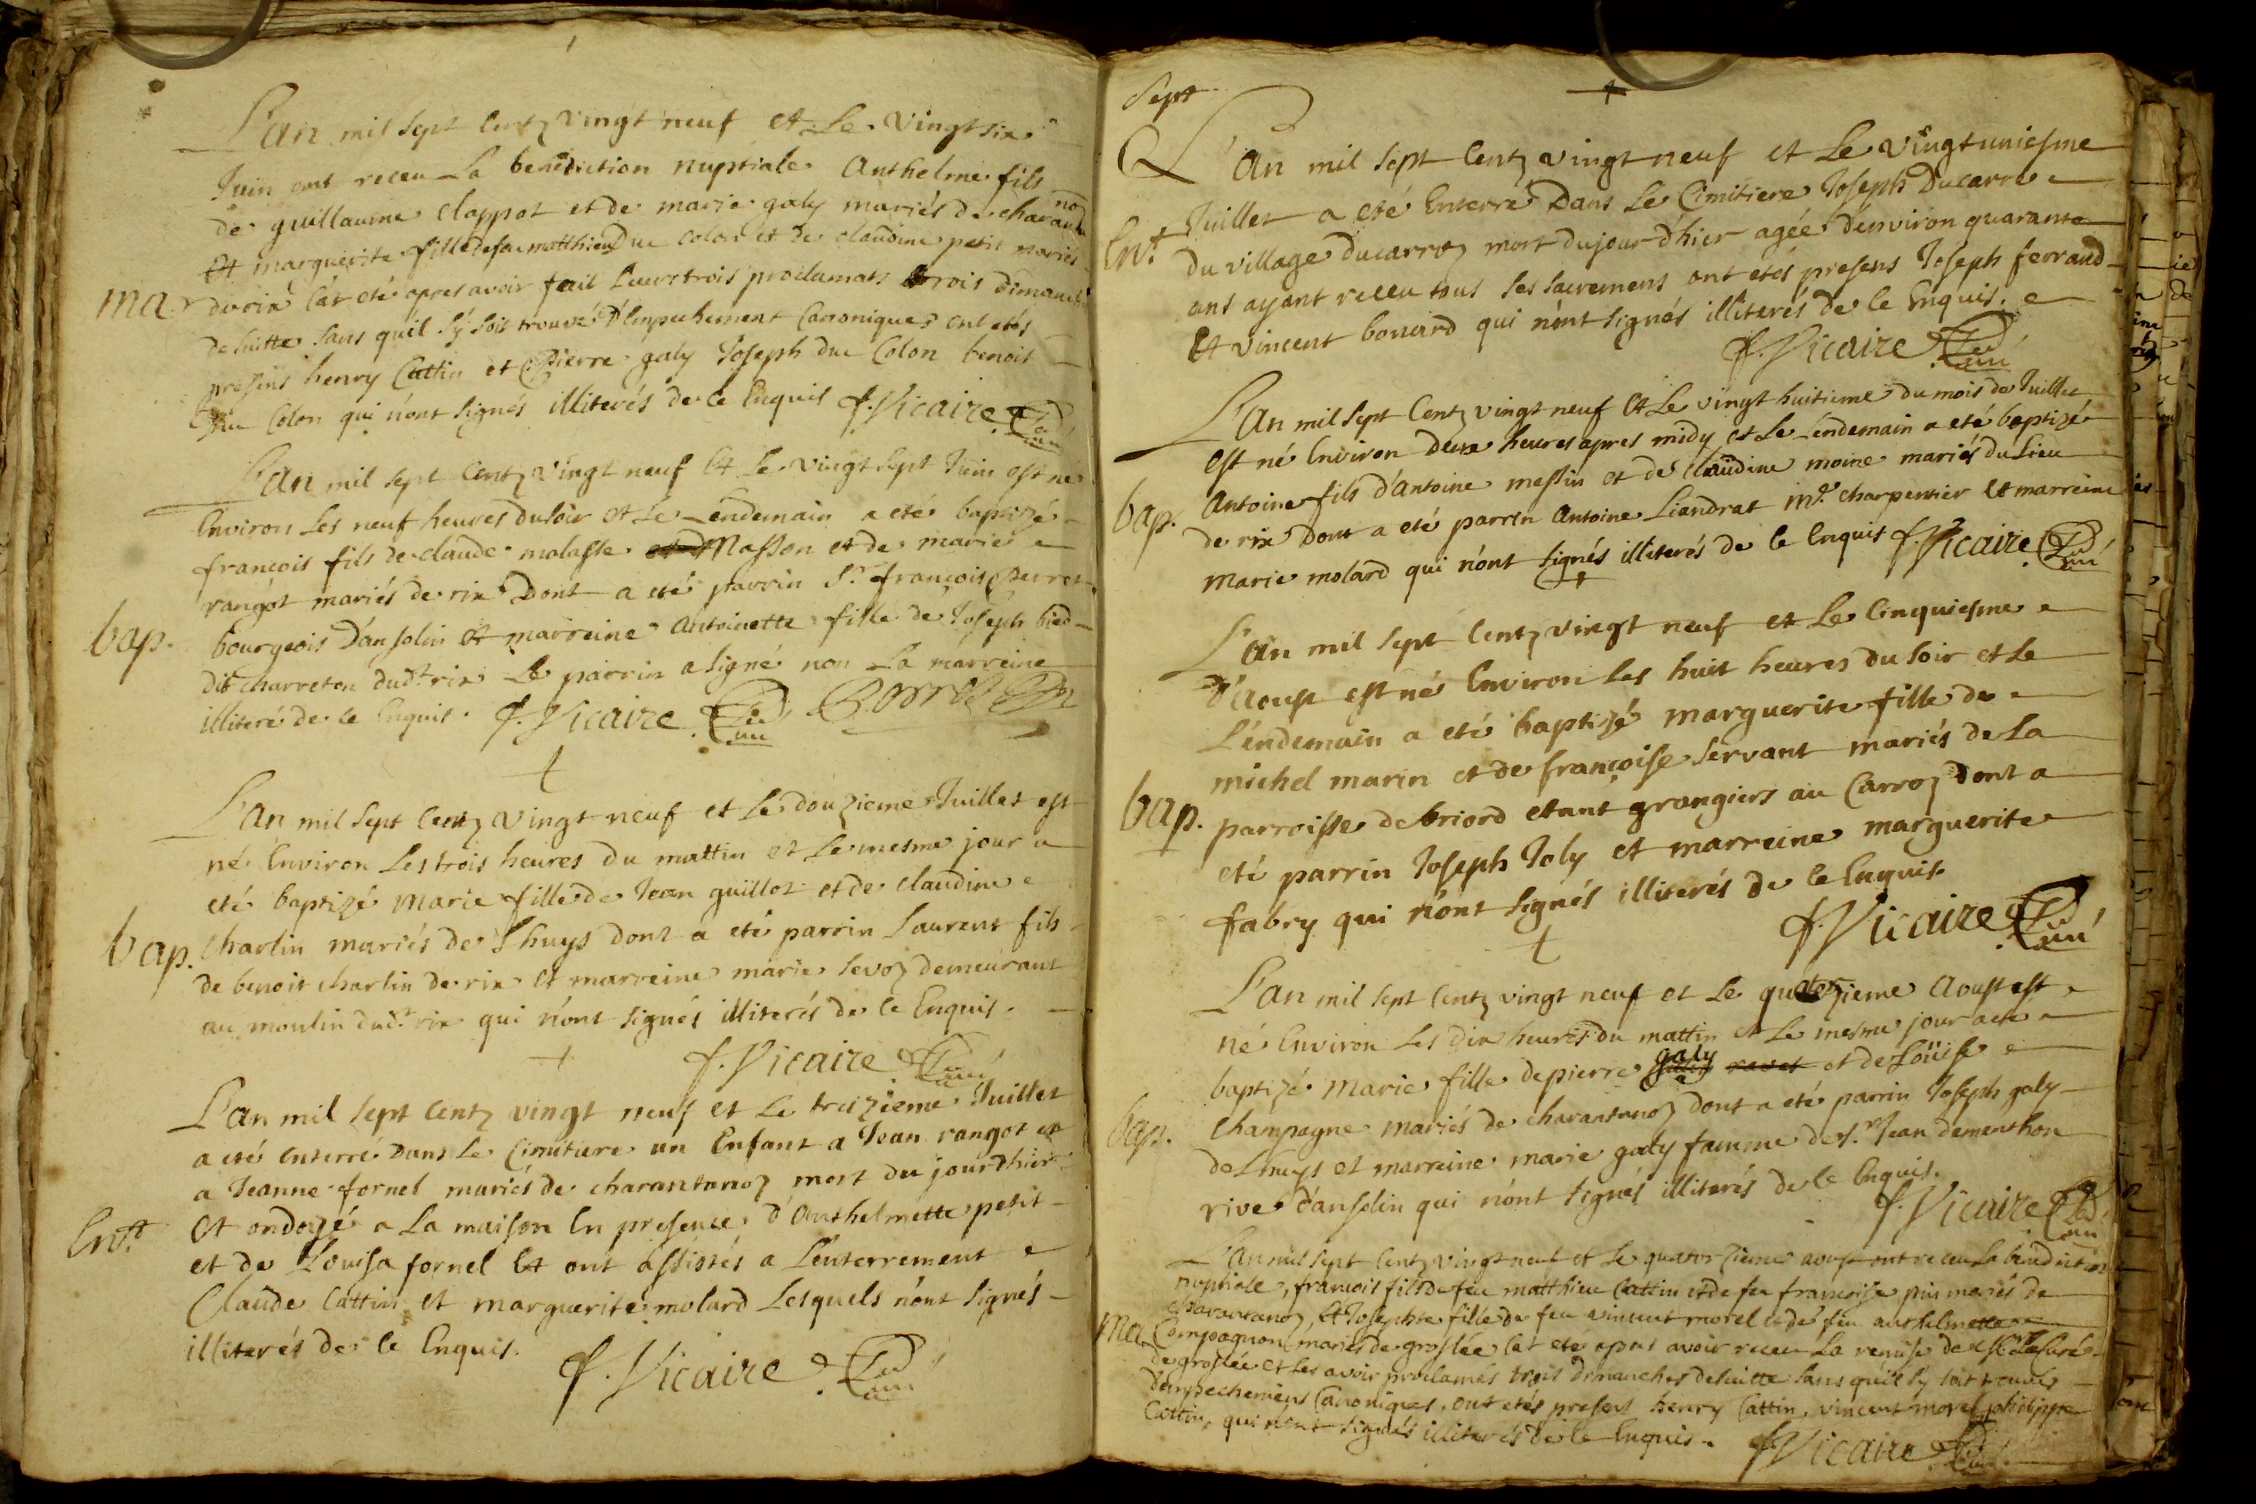 L'an mil sept centz vingt neuf et Le vingt six
Juin ont receu La benediction nuptiale Anthelme fils
de guillaume clappot et de marie galy mariés de charanta
noz
Et marguerite fille de feu matthieu Du colon et de claudine petit mariés
ma. de rix cat eté apres avoir fait Leurs trois proclamats trois dimanch
de suitte sans quil s'y soit trouvé D'Empechement Canoniques ont etés
presens henry Cattin et Pierre galy Joseph du Colon benoit
Du Colon qui n'ont signés illiterés de ce Enquis f. Vicaire Curé
L'an mil sept Centz vingt neuf Et Le vingt sept Juin est né
Environ Les neuf heures du soir et Le Lendemain a eté baptizé
françois fils de claude molasse Masson et de marie
rangot mariés de rix Dont a eté parrin Sr. françois Perret
bap. bourgeois D'ansolin Et marreine Antoinette fille de Joseph bied
dit charreton dudt. rix Le parrin a signé non La marreine
illiteré de ce Enquis. f. Vicaire Curé Perret
L'an mil sept Centz vingt neuf et Le douzieme Juillet est
né Environ Les trois heures du mattin et Le mesme jour a
eté baptizé Marie fille de Jean guillot et de claudine
bap. Charlin mariés de Lhuys dont a eté parrin Laurent fils
de benoit charlin de rix Et marreine marie sevoz demeurant
au moulin dudt. rix qui n'ont signés illiterés de ce Enquis.
f. Vicaire Curé
L'an mil sept Centz vingt neuf et Le treizieme Juillet
a eté enterré dans Le Cimitiere un Enfant a Jean rangot et
a Jeanne fornel mariés de charantanoz mort du jour d'hier
Entt. Et ondoyé a La maison En presence d'Anthelmette petit
et de Louisa fornel Et ont assistés a L'enterrement
Claude Cattin et marguerite molard Lesquels n'ont signés
illiterés de ce Enquis.
f. Vicaire Curé
Sept
L'an mil sept Centz vingt neuf et Le vingt uniesme
Juillet a eté Enterré Dans Le Cimitiere Joseph Ducarre
Entt. du village du carroz mort du jour d'hier agée d'environ quarante
ans ayant receu tous les sacremens ont etés presens Joseph ferrand
Et vincent bouvard qui n'ont signés illiterés de ce Enquis.
f. Vicaire Curé
L'an mil sept Centz vingt neuf Et Le vingt huitieme du mois de Juillet
est né Environ deux heures apres midy et Le Lendemain a eté baptizé
bap. Antoine fils d'antoine messin et de claudine moine mariés du Lieu
de rix Dont a eté parrin Antoine Liandrat me. charpentier Et marreine
Marie molard qui n'ont signés illiterés de ce Enquis f. Vicaire Curé
L'an mil sept Centz vingt neuf et Le Cinquiesme
d'Aoust est né Environ Les huit heures du soir et Le
L'endemain a eté baptizé marguerite fille de
michel marin et de françoise servant mariés de La
bap. parroisse de briord etant grangiers au Carroz dont a
eté parrin Joseph Joly et marreine marguerite
fabry qui n'ont signés illiterés de ce Enquis.
f. Vicaire Curé
L'an mil sept Centz vingt neuf et Le quatorzieme Aoust est
né Environ Les dix heures du mattin et Le mesme jour a eté
galy
baptizé Marie fille de pierre revet et de Loüise
bap. Champagne mariés de charantanoz dont a eté parrin Joseph galy
de Lhuys et marreine marie galy famme de Sr. Jean dementhon
rive d'ansolin qui n'ont signés illiterés de ce Enquis.
f. Vicaire Curé
L'an mil sept Centz vingt neuf et Le quatorzieme aoust ont receu La benediction
nuptiale, francois fils de feu matthieu Cattin et de feu francoise pin mariés de
charantanoz, Et Josephte fille de feu vincent morel et de feu anthelmette
ma. Compagnon mariés de groslée cat eté apres avoir receu La remise de Mr. Le Curé
de groslée et Les avoir proclamés trois dimanches de suitte sans qu'il s'y soit trouvé
d'empechemens Canoniques, ont etés presens henry Cattin, vincent morel, philippe
Cattin, qui n'ont signés illiterés de ce Enquis. f. Vicaire Curé